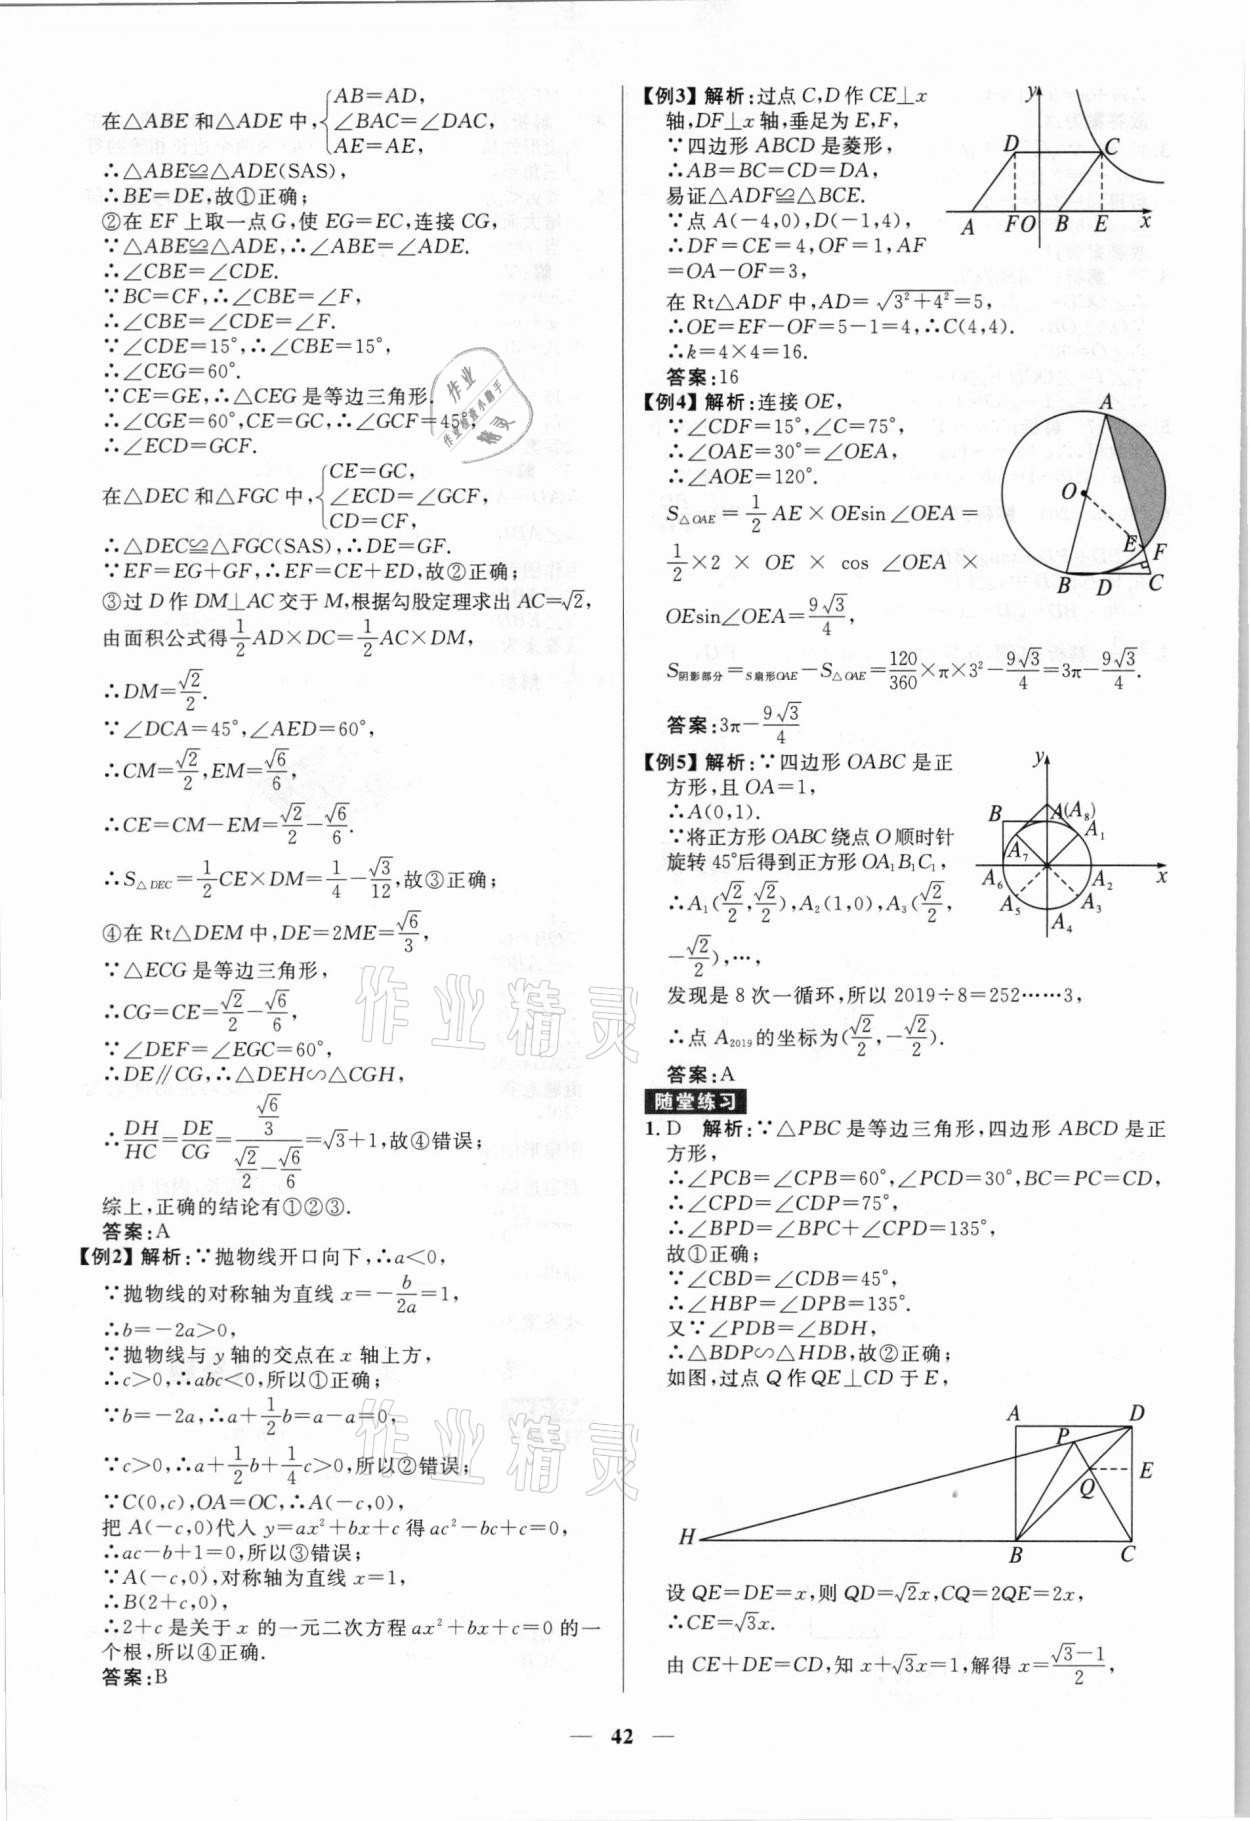 在△ABE 和△ADE 中,{AB=AD, ∠BAC=∠DAC, AE=AE,
∴△ABE≌△ADE(SAS),
∴BE=DE,故①正确;
②在 EF 上取一点 G,使 EG=EC,连接 CG,
∵△ABE≌△ADE,∴∠ABE=∠ADE.
∴∠CBE=∠CDE.
∵BC=CF,∴∠CBE=∠F,
∴∠CBE=∠CDE=∠F.
∵∠CDE=15°,∴∠CBE=15°,
∴∠CEG=60°.
∵CE=GE,∴△CEG 是等边三角形.
∴∠CGE=60°,CE=GC,∴∠GCF=45°,
∴∠ECD=GCF.
在△DEC 和△FGC 中,{CE=GC, ∠ECD=∠GCF, CD=CF,
∴△DEC≌△FGC(SAS),∴DE=GF.
∵EF=EG+GF,∴EF=CE+ED,故②正确;
③过 D 作 DM⊥AC 交于 M,根据勾股定理求出 AC=√2,
由面积公式得 1/2 AD×DC=1/2 AC×DM,
∴DM=√2/2.
∵∠DCA=45°,∠AED=60°,
∴CM=√2/2,EM=√6/6,
∴CE=CM-EM=√2/2-√6/6.
∴S△DEC=1/2 CE×DM=1/4-√3/12,故③正确;
④在 Rt△DEM 中,DE=2ME=√6/3,
∵△ECG 是等边三角形,
∴CG=CE=√2/2-√6/6,
∵∠DEF=∠EGC=60°,
∴DE∥CG,∴△DEH∽△CGH,
∴DH/HC=DE/CG=(√6/3)/(√2/2-√6/6)=√3+1,故④错误;
综上,正确的结论有①②③.
答案:A
【例2】解析:∵抛物线开口向下,∴a<0,
∵抛物线的对称轴为直线 x=-b/2a=1,
∴b=-2a>0,
∵抛物线与 y 轴的交点在 x 轴上方,
∴c>0,∴abc<0,所以①正确;
∵b=-2a,∴a+1/2 b=a-a=0,
∵c>0,∴a+1/2 b+1/4 c>0,所以②错误;
∵C(0,c),OA=OC,∴A(-c,0),
把 A(-c,0)代入 y=ax²+bx+c 得 ac²-bc+c=0,
∴ac-b+1=0,所以③错误;
∵A(-c,0),对称轴为直线 x=1,
∴B(2+c,0),
∴2+c 是关于 x 的一元二次方程 ax²+bx+c=0 的一
个根,所以④正确.
答案:B
【例3】解析:过点 C,D 作 CE⊥x
轴,DF⊥x 轴,垂足为 E,F,
∵四边形 ABCD 是菱形,
∴AB=BC=CD=DA,
易证△ADF≌△BCE.
∵点 A(-4,0),D(-1,4),
∴DF=CE=4,OF=1,AF
=OA-OF=3,
在 Rt△ADF 中,AD=√(3²+4²)=5,
∴OE=EF-OF=5-1=4,∴C(4,4).
∴k=4×4=16.
答案:16
y
D
C
A
F
O
B
E
x
【例4】解析:连接 OE,
∵∠CDF=15°,∠C=75°,
∴∠OAE=30°=∠OEA,
∴∠AOE=120°.
S△OAE=1/2 AE×OEsin∠OEA=
1/2×2 × OE × cos ∠OEA ×
OEsin∠OEA=9√3/4,
S阴影部分=S扇形OAE-S△OAE=120/360×π×3²-9√3/4=3π-9√3/4.
答案:3π-9√3/4
A
O
E
F
B
D
C
【例5】解析:∵四边形 OABC 是正
方形,且 OA=1,
∴A(0,1).
∵将正方形 OABC 绕点 O 顺时针
旋转 45°后得到正方形 OA₁B₁C₁,
∴A₁(√2/2,√2/2),A₂(1,0),A₃(√2/2,
-√2/2),…,
发现是 8 次一循环,所以 2019÷8=252……3,
∴点 A₂₀₁₉的坐标为(√2/2,-√2/2).
答案:A
y
B
A(A₈)
A₁
A₇
A₆
A₂
x
A₅
A₃
A₄
随堂练习
1. D 解析:∵△PBC 是等边三角形,四边形 ABCD 是正
方形,
∴∠PCB=∠CPB=60°,∠PCD=30°,BC=PC=CD,
∴∠CPD=∠CDP=75°,
∴∠BPD=∠BPC+∠CPD=135°,
故①正确;
∵∠CBD=∠CDB=45°,
∴∠HBP=∠DPB=135°.
又∵∠PDB=∠BDH,
∴△BDP∽△HDB,故②正确;
如图,过点 Q 作 QE⊥CD 于 E,
A
D
P
E
Q
H
B
C
设 QE=DE=x,则 QD=√2x,CQ=2QE=2x,
∴CE=√3x.
由 CE+DE=CD,知 x+√3x=1,解得 x=(√3-1)/2,
— 42 —
作业精灵
作业精灵
作业
作业检查小助手
精灵